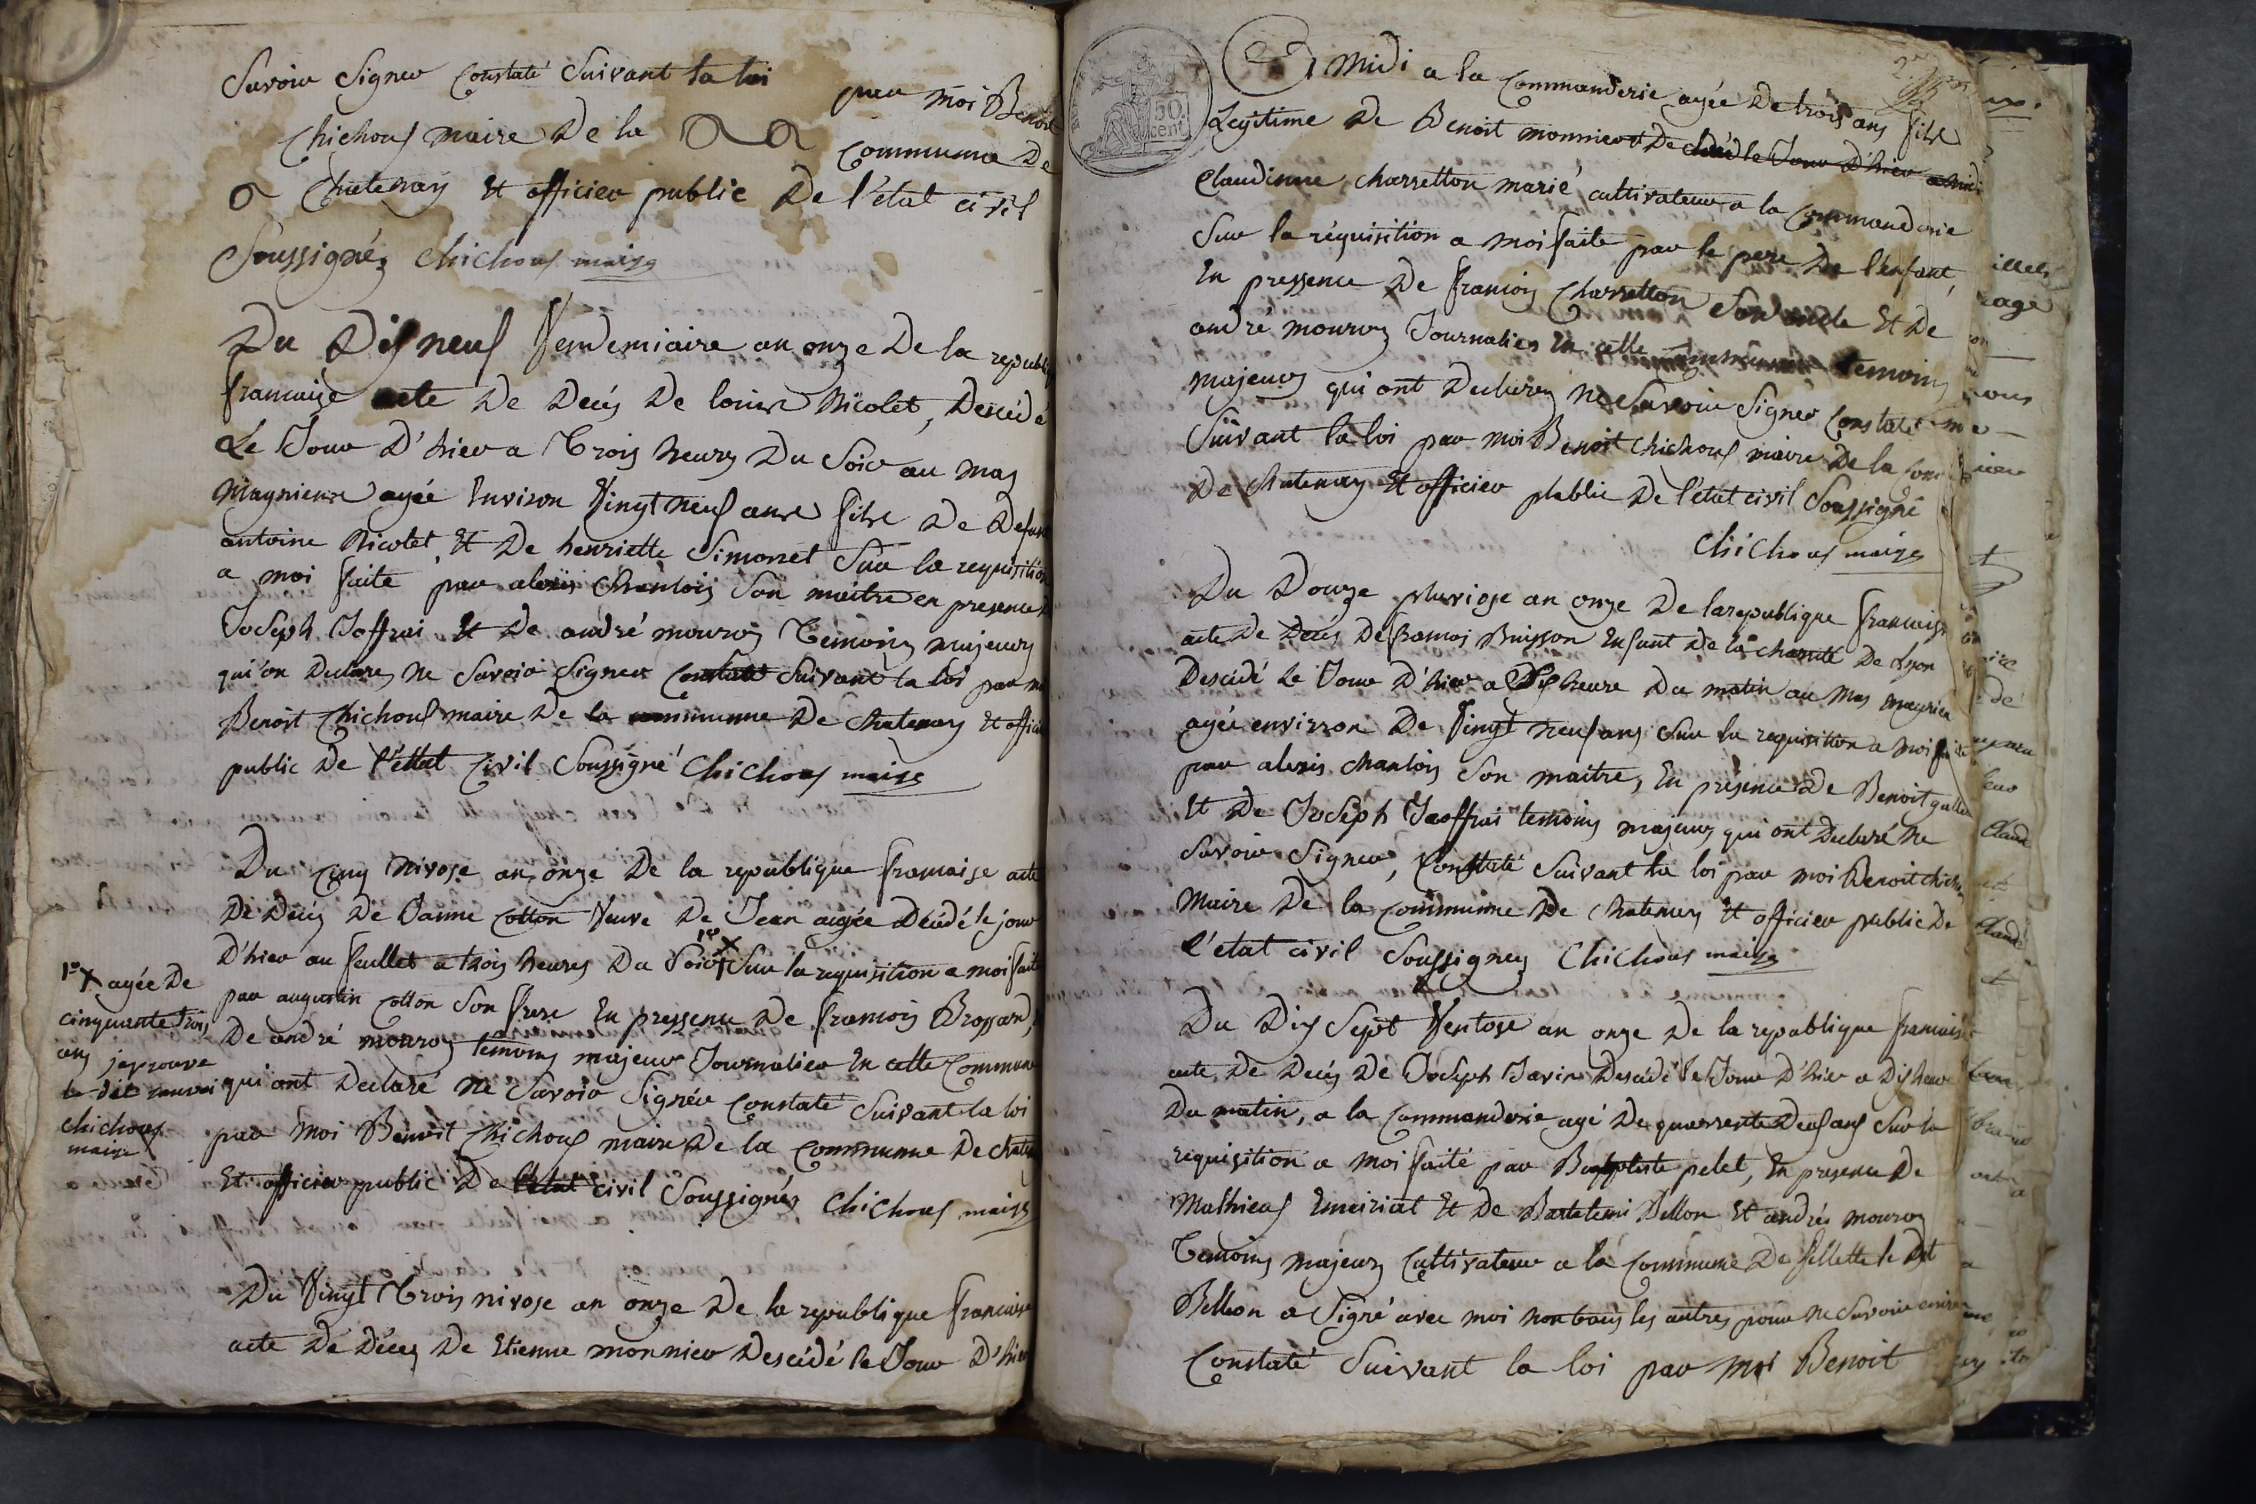 Savoir Signer Constaté Suivant la loi par moi Benoit
Chichoux maire De la Commune De
Chatenay Et officier public De l'état civil
Soussigné, Chichoux maire
Du Dix neuf Vendemiaire an onze De la republi
francaize acte De Decés De Nicolet, Descédé
Le Jour D'hier a Trois heures Du Soir au mas
Magnieux agée Environ Vingt neuf ans fils De Defunt
antoine Nicolet, Et De henriette Simonet Sur la requisition
a moi faite par alexis Chanlois Son maitre en presence
Joseph Joffrai Et De andré mouroz Témoins majeurs
qui on Declares ne Savoir Signer Constaté Suivant la loi par
Benoit Chichoux maire De la communne De chatenay Et offici
public De l'éttat Civil Soussigné Chichoux maire
Du Cinq Nivose an onze De la republique francaise acte
De Decés De Janne Cotton Veuve De Jean augée Décédé le jour
D'hier au feullet a trois heures Du Soir 1º X Sur la requisition a moi faite
par augustin Cotton Son frere En pressence De francois Brossard,
De andré mouroz temoins majeurs Journalier En cette Commune
qui ont Declaré ne Savoir Signér Constaté Suivant la loi
par Moi Benoit Chichoux maire De la Communne De chate
Et officier public De l'état civil Soussignés Chichoux maire
1º X agée De
cinquante trois
ans japrouve
le dit renvoi
chichoux
maire
Du Vingt Trois nivose an onze De la republique francaise
acte De Décés De Etienne monnier Descédé le Jour D'hier
50
cent
A Midi a la Commanderie agée De trois ans fils
Legitime De Benoit monnier Et De
Claudinne charretton marié cultivateur a la Commanderie
Sur la réquisition a moi faite par le pere De l'enfant,
En pressence De francois Charretton Son oncle Et De
andré mouroz Journalier En cette temoins
majeurs qui ont Declarez Ne Savoir Signer Constaté
Suivant la loi par moi Benoit Chichoux maire De la Com
De Chatenay Et officier plablic De l'état civil Soussigné
Chichoux maire
Du Douze pluviose an onze De la republique francaise
acte De Decés De francois Buisson Enfant De la charité De Lyon
Descédé Le Jour D'hier a Dix heure Du matin au Mas magnieu
agée envirron De Vingt neuf ans Sur la requisition a moi faite
par alexis chanlois Son maitre, En présence De Benoit
Et De Joseph Jaoffrai temoins majeurs qui ont Declaré Ne
Savoir Signer, Constaté Suivant la loi par moi Benoit chichoux
Maire De la Communne De Chatenay Et officier public De
l'état civil Soussignez Chichoux maire
Du Dix Sept Ventose an onze De la republique francaise
acte De Decés De Joseph Javin Descédé le Jour D'hier a Dix heure
Du matin, a la Commanderie agé De quarrente Deux ans Sur la
requisition a moi faité par Bapptiste pelet, En presence De
Mathieux Emeiriat Et De Bartelemi Et andrée mouroz
Temoins majeurs Cultivateur a la Commune De Villette le Dit
a Signé avec moi non tous les autres pour ne Savoir ecrire
Constaté Suivant la loi par moi Benoit